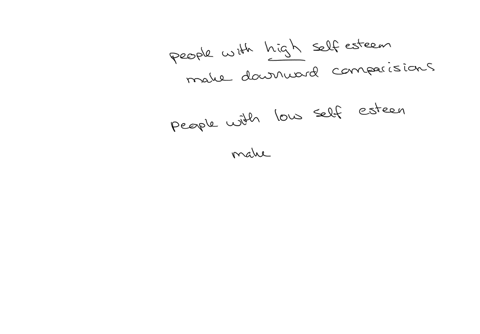 people with high self esteem
make downward comparisions
people with low self esteen
make